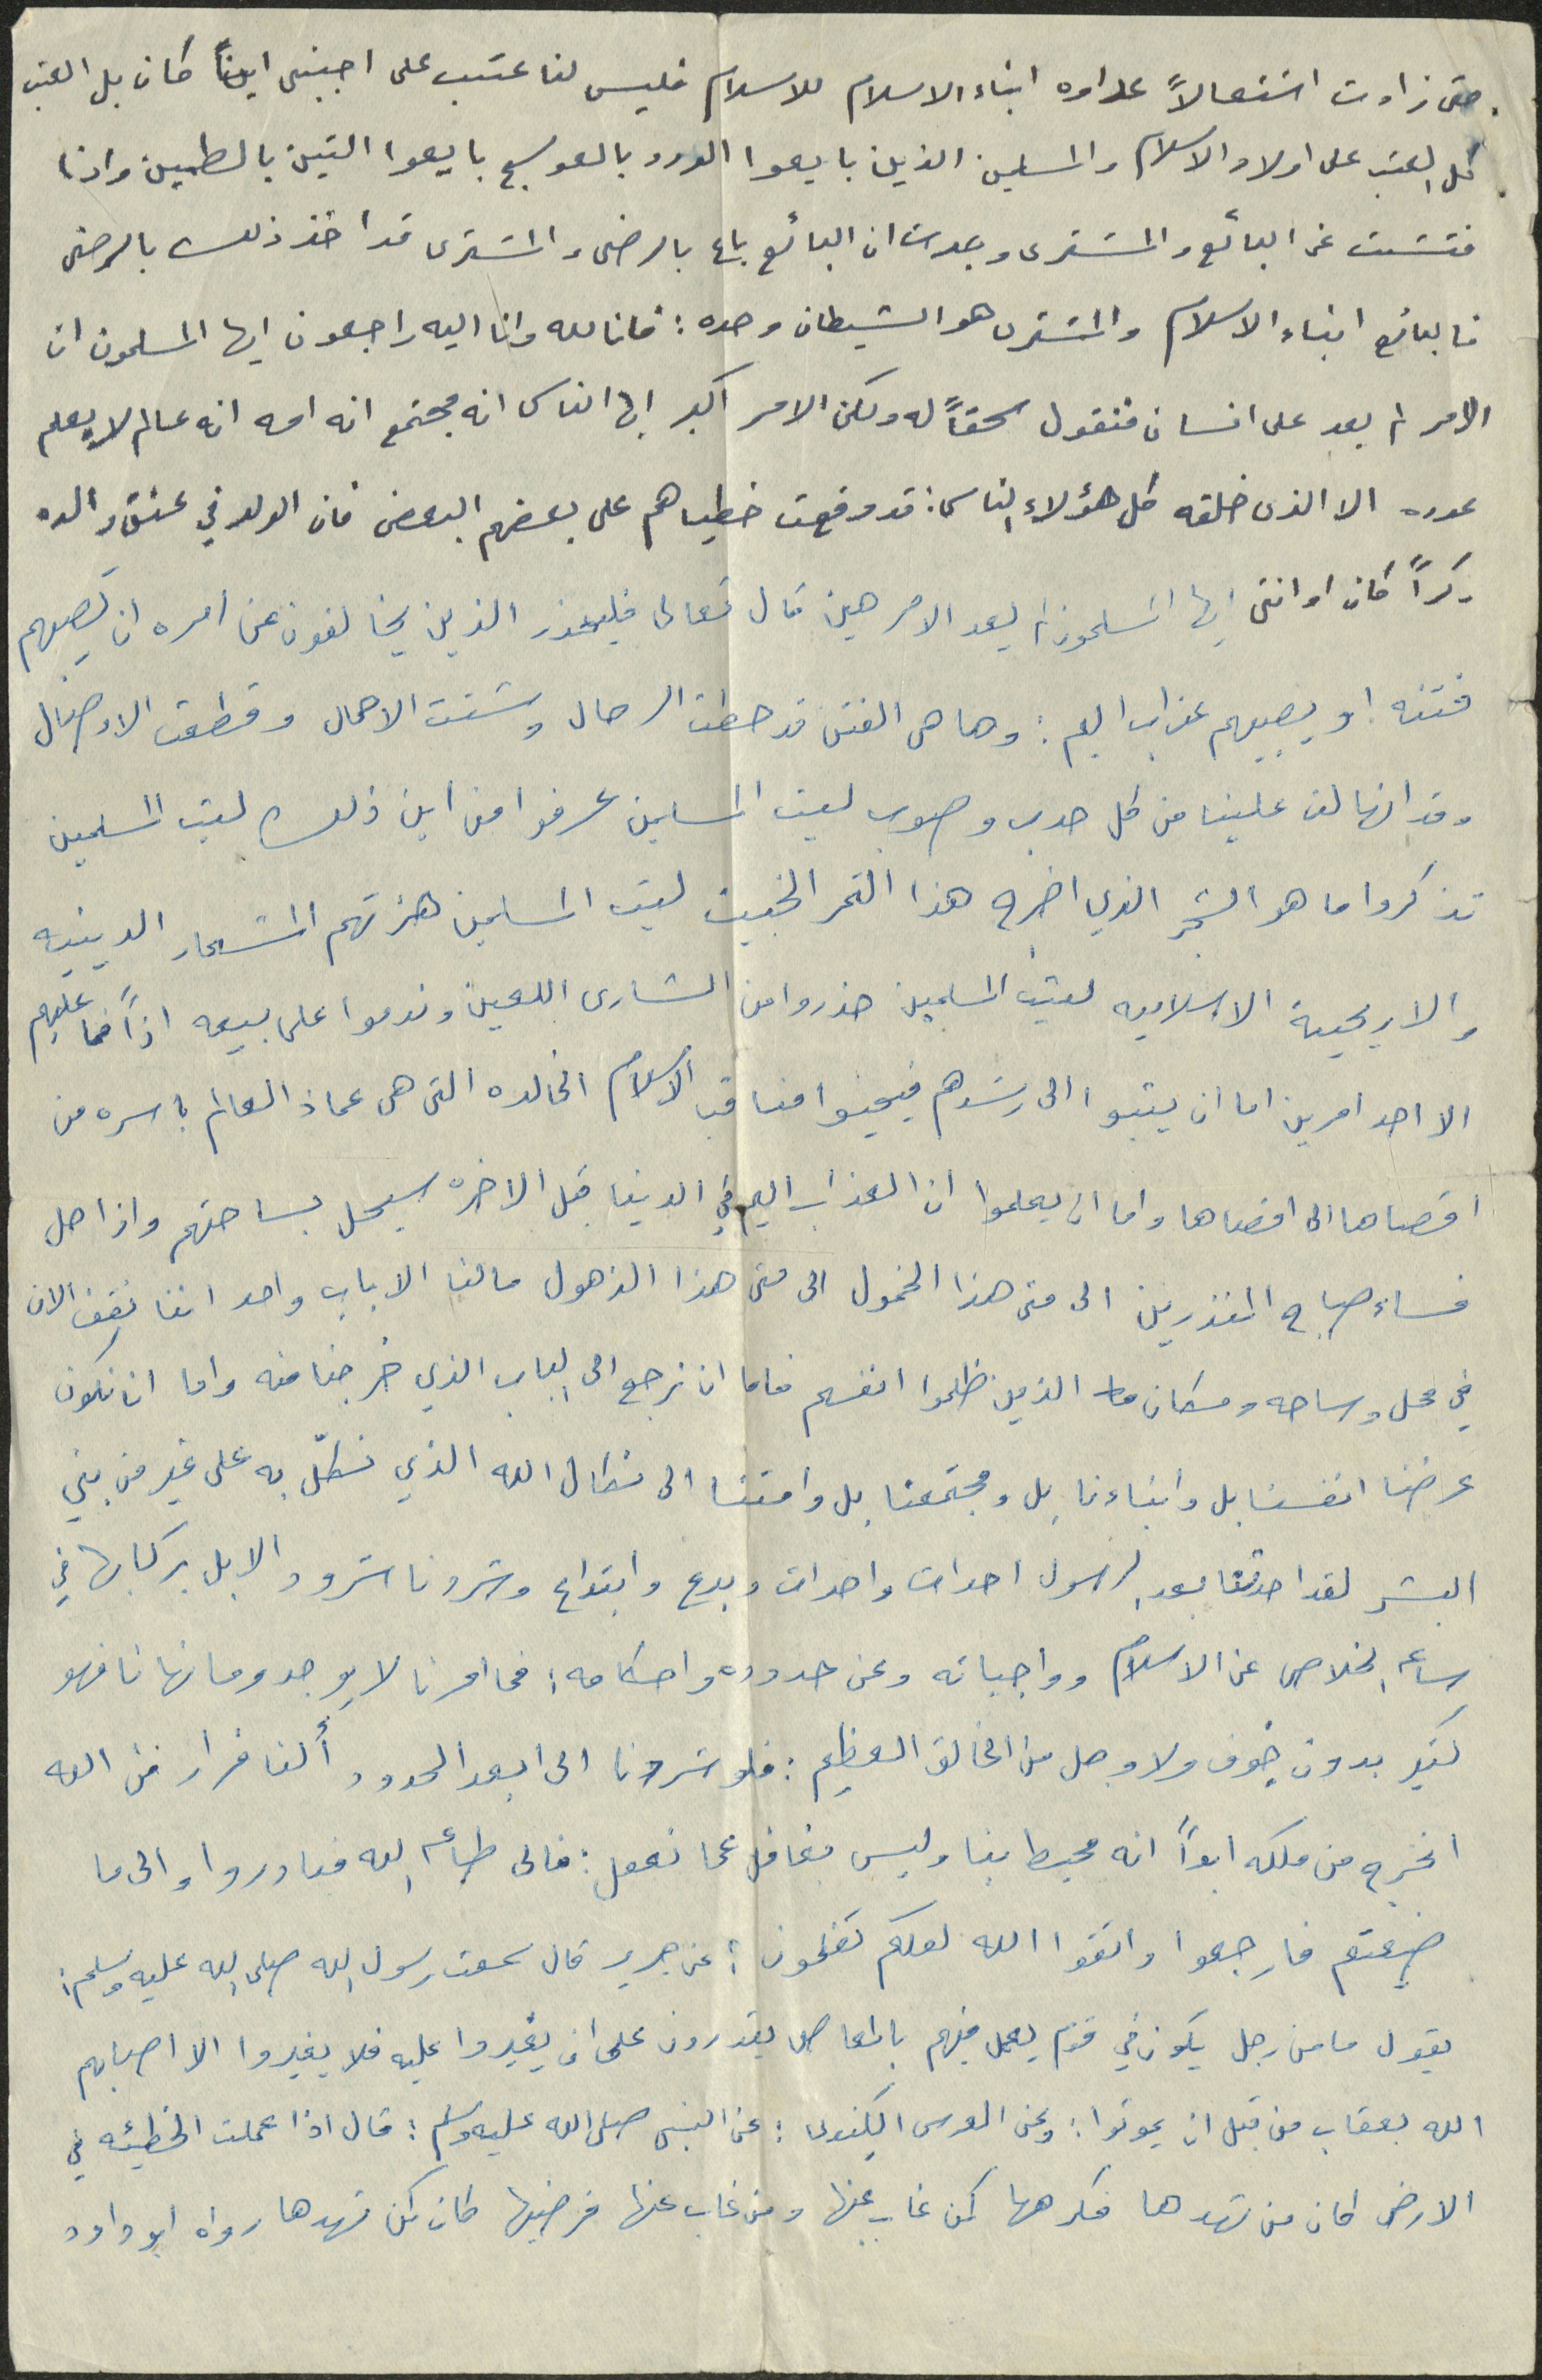 حتى زادت اشتعالاً عداوه ابناء الاسلام للاسلام فليس لنا عتب على اجنبي ايناً كان بل العتب
كل العتب على اولاد الاسلام والمسلمين الذين بايعوا الورد بالعوسج بايعوا التين بالطين واذا
فتشت عن البائع والمشترى وجدت ان البائع باع بالرضى والمشترى قد اخذ ذلك بالرضى
فالبائع ابناء الاسلام والمشترى هو الشيطان وحده : فانا لله وانا اليه راجعون ايها المسلمون ان
الامر لم يعد على انسان فنقول سحقاً له ولكن الامر اكبر ايها الناس انه مجتمع انه امه انه عالم لا يعلم
عدده الا الذى خلقه كل هؤلاء الناس : قد وقعت خطياهم على بعضهم البعض فان الولد في عنق والده
ذكراً كان او انثى ايها المسلمون لم يعد الامر هين قال تعالى فليحذر الذين يخالفون عن امره ان تصيبهم
فتنه او يصيبهم عذاب اليم : وها هى الفتن قد حطت الرحال وشتت الاحمال وقطعت الاوصال
وقد انهالت علينا من كل حدب وصوب ليت المسلمين عرفوا من اين ذلك ليت المسلمين
تذكروا ما هو الشجر الذي اخرج هذا الثمر الخبيث ليت المسلمين هزتهم المشعار الدينيه
والاريحية الاسلاميه ليت المسلمين حذروا من الشارى اللعين وندموا على بيعه اذاً فما عليهم
الا احد امرين اما ان يتبوا الى رشدهم فيحيوا مناقب الاسلام الخالده التى هى عماد العالم باسره من
اقصاها الى اقصاها واما ان يعلموا ان العذاب اليم في الدينا قبل الاخره سيحل بساحتهم واذا حل
فساء صباح المنذرين الى متى هذا الخمول الى متى هذا الذهول مالنا الا باب واحد اننا نقف الان
في محل وساحه ومسكان الذين ظلموا انفسهم فاما ان نرجع الى الباب الذي خرجنا منه واما ان نكون
عرضنا انفسنا بل وابناءنا بل ومجتمعنا بل وامتنا الى نكال الله الذي نكلّ به على غير من بني
البشر لقد احدثنا بعد الرسول احداث واحداث وبدع وابتداع وشردنا شرود الابل بركابها في
ساعه الخلاص عن الاسلام وواجباته وعن حدوده واحكامه : فما امرنا لا يوجد وما نهانا فهو
كثير بدون خوف ولا وجل من الخالق العظيم : فلو شردنا الى ابعد الحدود ألنا فرار من الله
انخرج من ملكه ابداً انه محيط بنا وليس بغافل عما نعمل : فالى طاعه الله فبادروا والى ما
ضيعتم فارجعوا واتقوا الله لعلكم تفلحون : عن جرير قال سمعت رسول الله صلى الله عليه وسلم :
يقول ما من رجل يكون في قوم يعمل فيهم بالمعاصى يقدرون على ان يغيروا عليه فلا يغيروا الا اصابهم
الله بعقاب من قبل ان يموتوا : وعن العرس الكندى : عن النبى صلى الله عليه وسلم : قال اذا عملت الخطيئه في
الارض كان من شهدها فكرهها كمن غاب عنها ومن غاب عنها فرضيها كان كمن شهدها رواه ابو داود